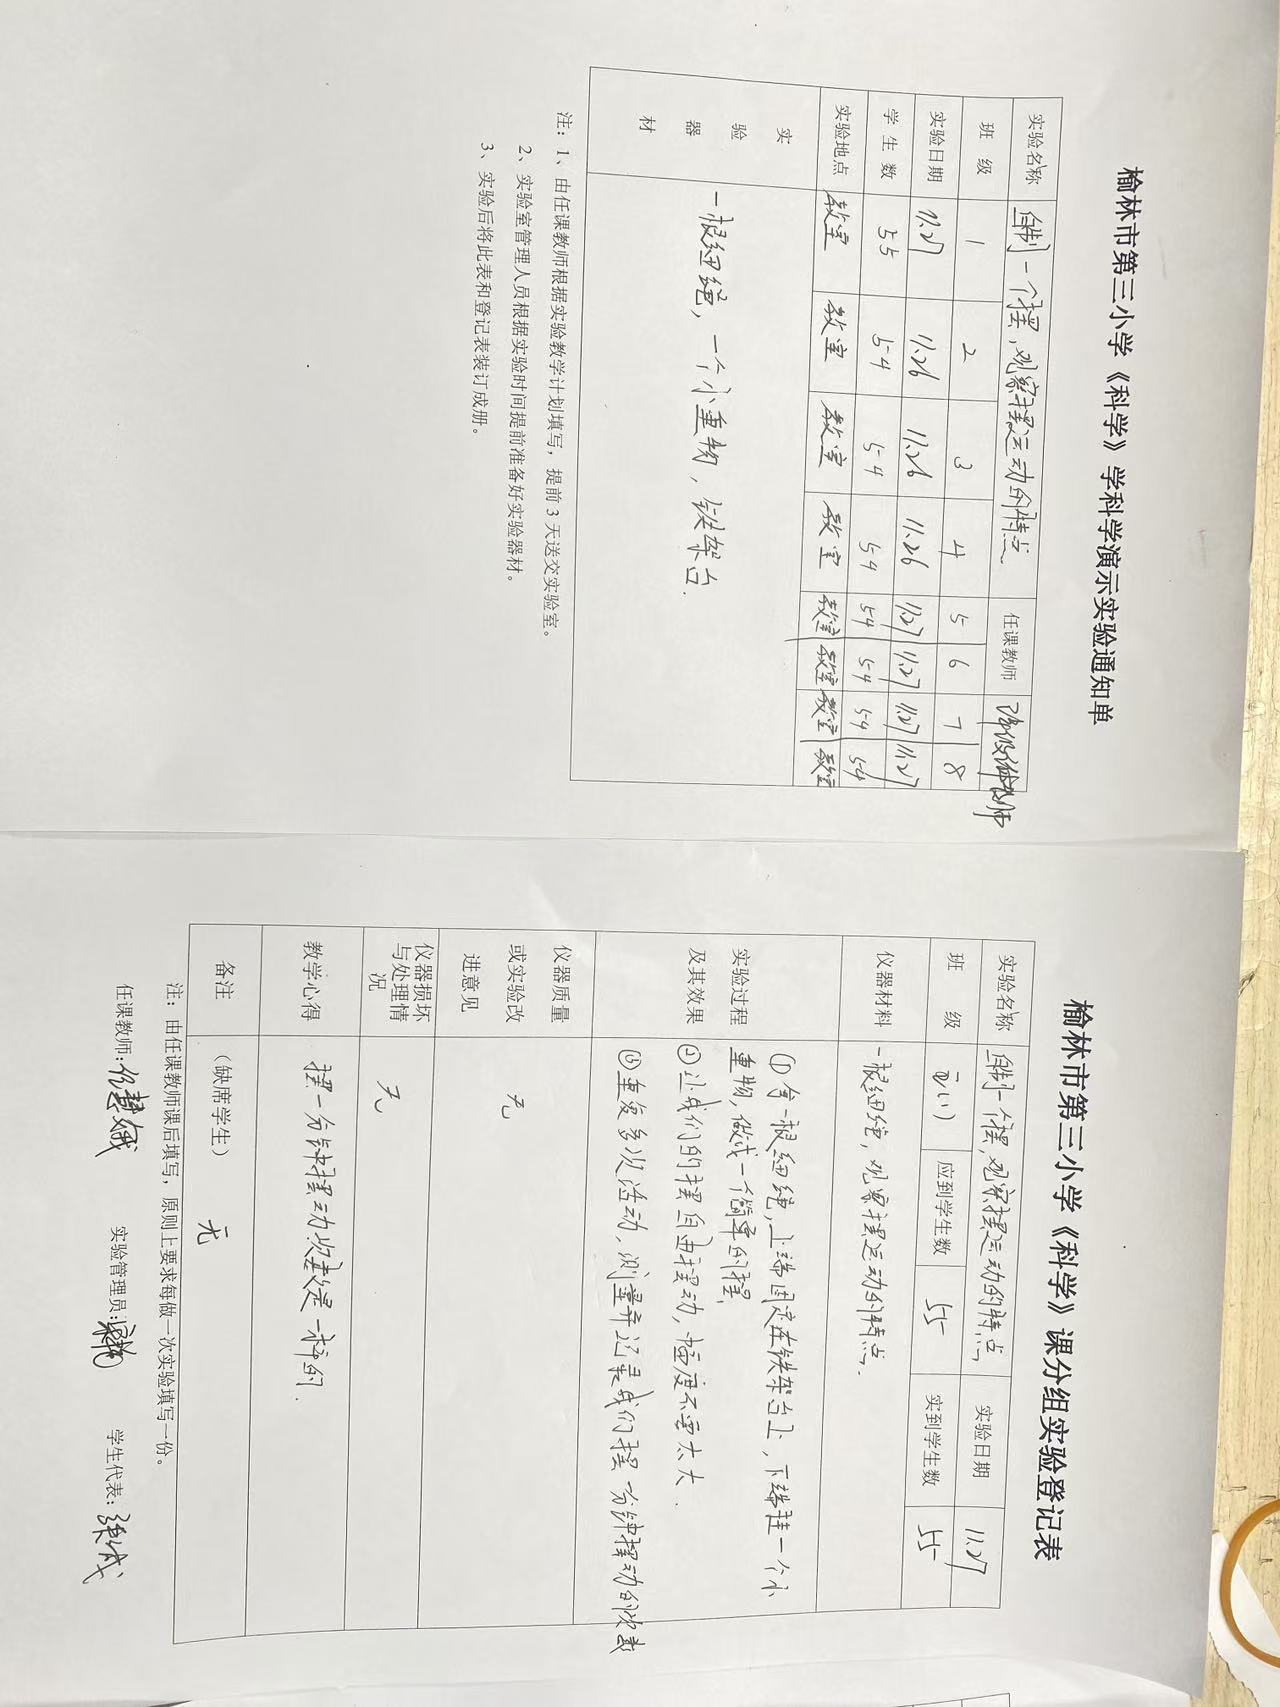 榆林市第三小学《科学》学科学演示实验通知单
实验名称 自制一个摆,观察摆运动的特点 任课教师
班 级 1 2 3 4 5 6 7 8
实验日期 11.27 11.26 11.26 11.26 11.27 11.27 11.27 11.27
学生数 55 54 54 54 54 54 54 54
实验地点 教室 教室 教室 教室 教室 教室 教室 教室
实验器材 一根细绳,一个小重物,铁架台.
注:1、由任课教师根据实验教学计划填写,提前 3 天送交实验室。
2、实验室管理人员根据实验时间提前准备好实验器材。
3、实验后将此表和登记表装订成册。
榆林市第三小学《科学》课分组实验登记表
实验名称 自制一个摆,观察摆运动的特点 实验日期 11.27
班 级 五(1) 应到学生数 55 实到学生数 55
仪器材料 一根细绳,观察摆运动的特点.
实验过程及其效果 ①拿一根细绳,上端固定在铁架台上,下端挂一个小
重物,做成一个简单的摆,
②让我们的摆自由摆动,幅度不要太大.
③重复多次活动,测量并记录我们摆一分钟摆动的次数
仪器质量或实验改进意见 无
仪器损坏与处理情况 无
教学心得 摆一分钟摆动次数是一样的.
备注 (缺席学生) 无
注:由任课教师课后填写,原则上要求每做一次实验填写一份。
任课教师: 实验管理员: 学生代表: